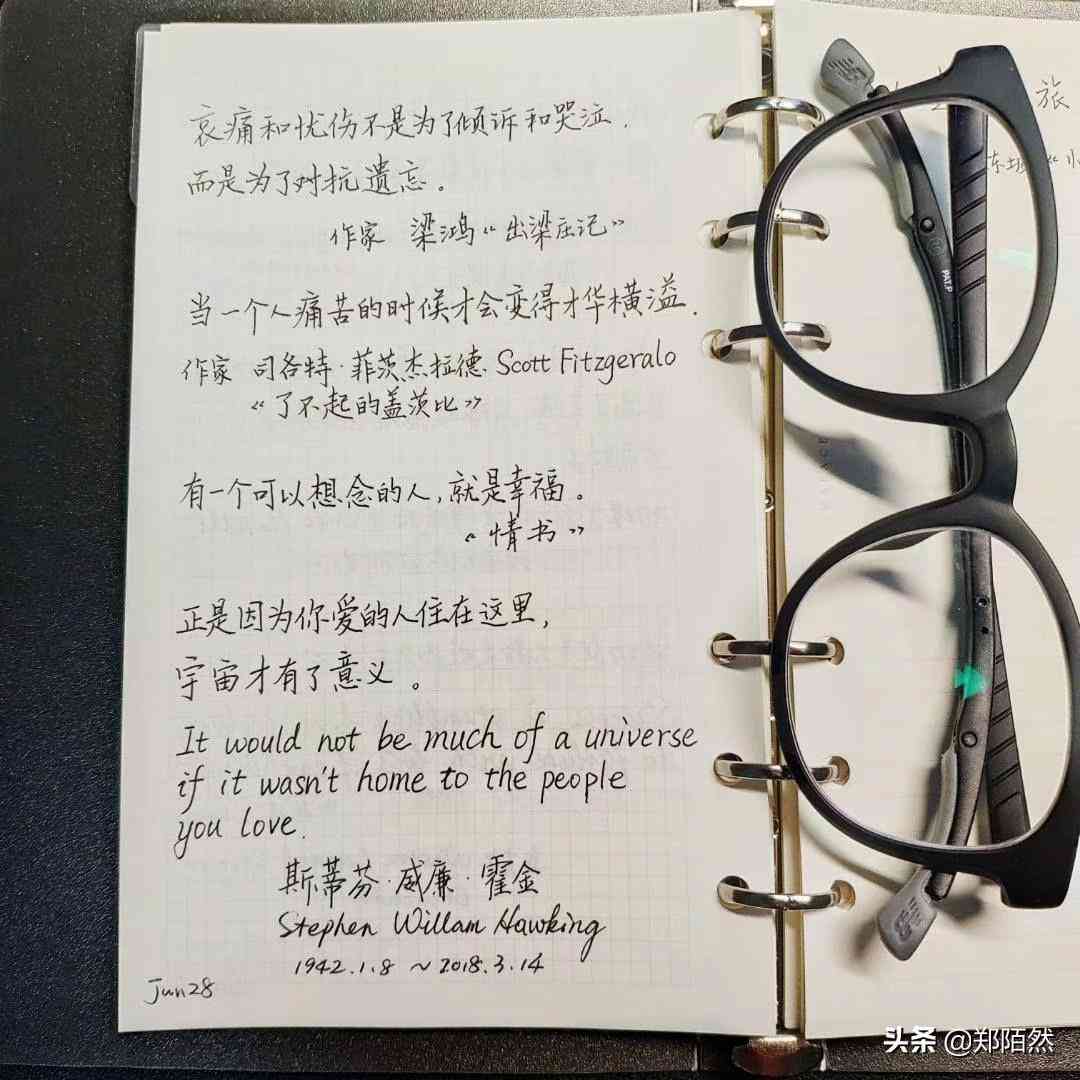 哀痛和忧伤不是为了倾诉和哭泣.
而是为了对抗遗忘。
作家 梁鸿《出梁庄记》
当一个人痛苦的时候才会变得才华横溢.
作家 司各特·菲茨杰拉德. Scott Fitzgeralo
《了不起的盖茨比》
有一个可以想念的人,就是幸福。
《情书》
正是因为你爱的人住在这里,
宇宙才有了意义。
It would not be much of a universe
if it wasn't home to the people
you love.
斯蒂芬·威廉·霍金
Stephen Willam Hawking
1942.1.8 ~ 2018.3.14
Jun28
旅
PAT.P
头条 @郑陌然